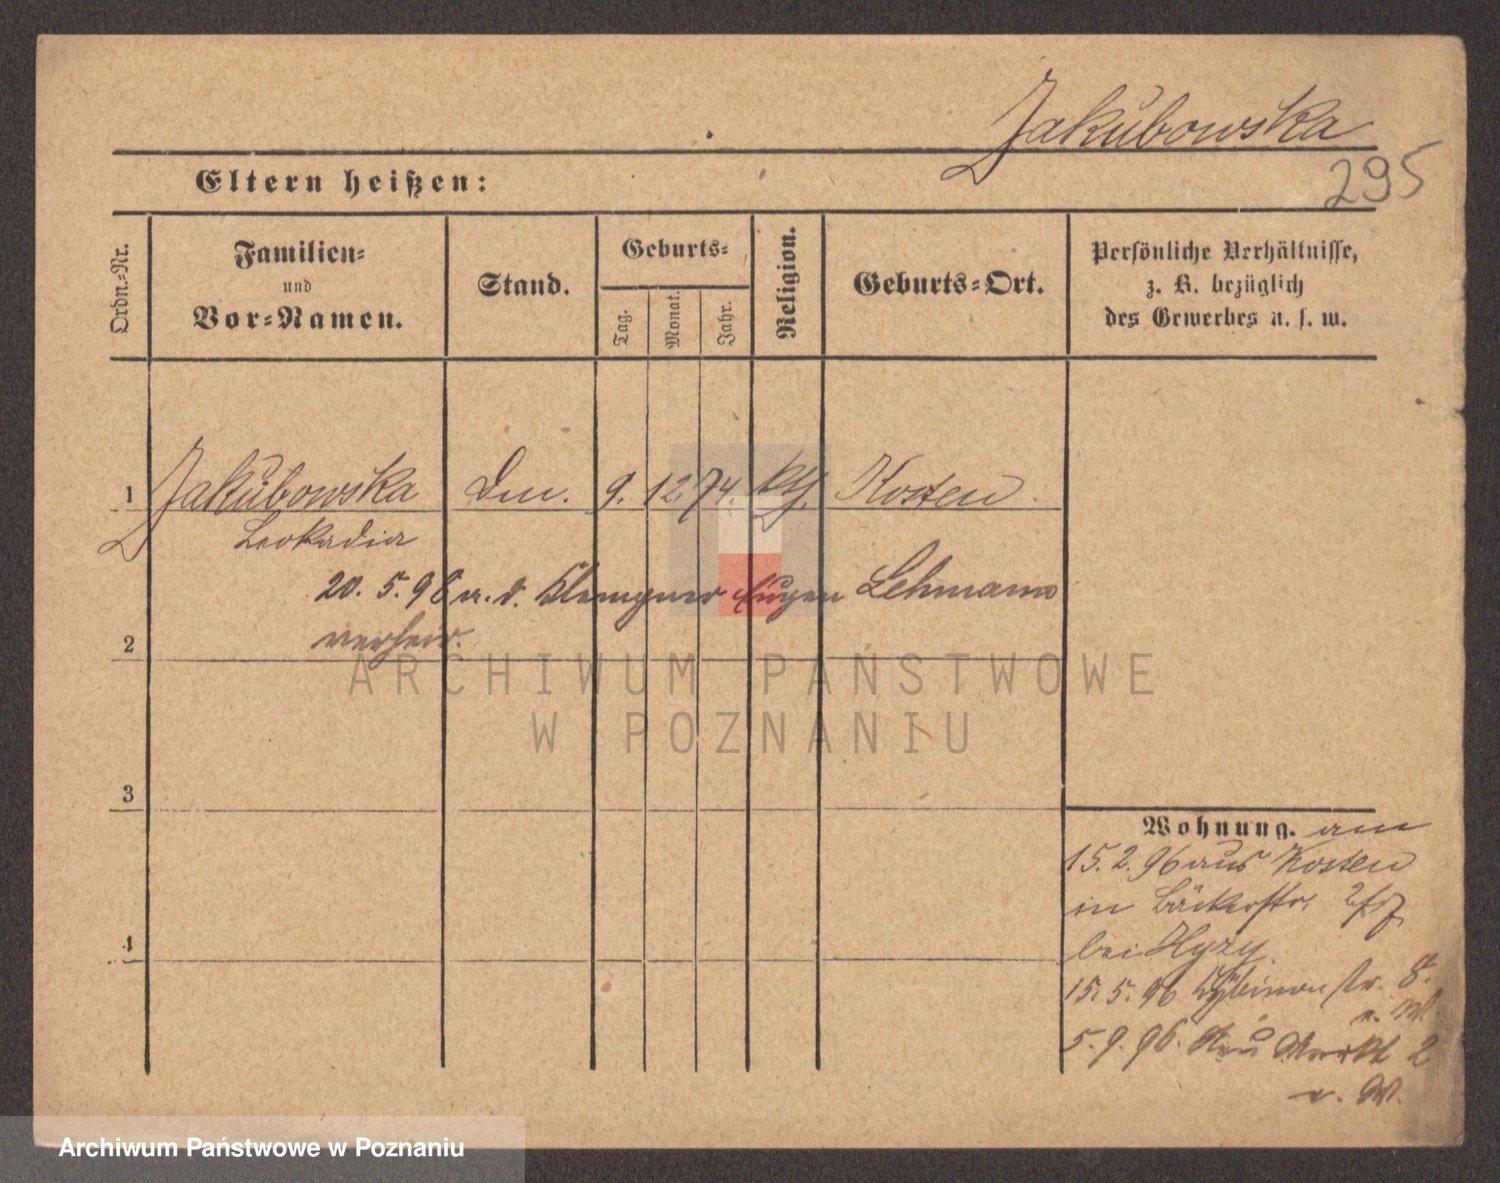 Jakubowska
295
Eltern heißen:
Ordn.-Nr.
Familien-
und
Vor-Namen.
Stand.
Geburts-
Tag.
Monat.
Jahr.
Religion.
Geburts-Ort.
Persönliche Verhältnisse,
z. B. bezüglich
des Gewerbes u. s. w.
1 Jakubowska 9. 12. 74. Kosten
Leokadia
20. 5. 98 m. d. Klempner Eugen Lehmann
2 verheir.
3
4
Wohnung. am
15. 2. 96 aus Kosten
in Bäckerstr.
bei Hyzy.
15. 5. 96 8.
5. 9. 96. Neu Markt 2
v. W.
ARCHIWUM PAŃSTWOWE
W POZNANIU
Archiwum Państwowe w Poznaniu